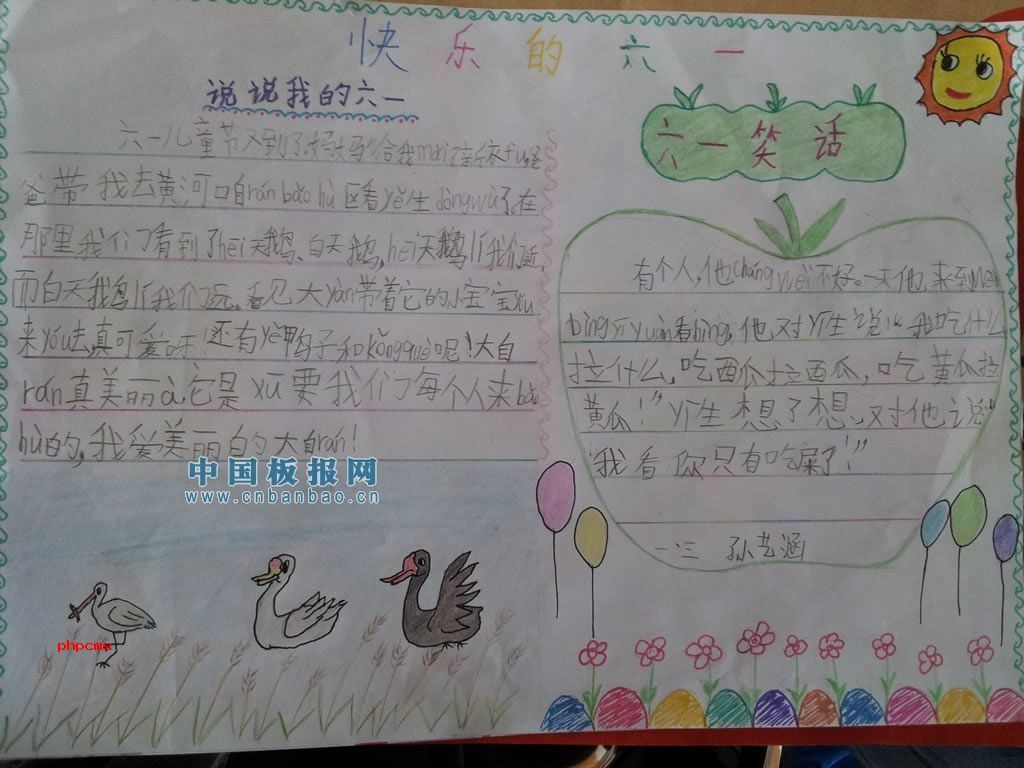 快乐的六一
说说我的六一
六一儿童节又到了,妈妈给我mǎi了新衣fu,爸
爸带我去黄河口自rán bǎo hù区看yě生dòng wù了,在
那里我们看到了hēi天鹅、白天鹅,hēi天鹅lí我们近
而白天鹅lí我们远。看见大yàn带着它的小宝宝yóu
来yóu去真可爱呀!还有yě鸭子和kǒng què呢!大自
rán真美丽à,它是xū要我们每个人来bǎo
hù的,我爱美丽的大自rán!
六一笑话
有个人,他cháng wèi不好。一天他,来到wèi
bìng yī yuàn看bìng,他对yī生说:“我吃什么
拉什么,吃西瓜拉西瓜,吃黄瓜拉
黄瓜!”yī生想了想,对他说:“
“我看你只有吃屎了!”
一.三 孙艺涵
中国板报网
www.cnbanbao.cn
phpcms